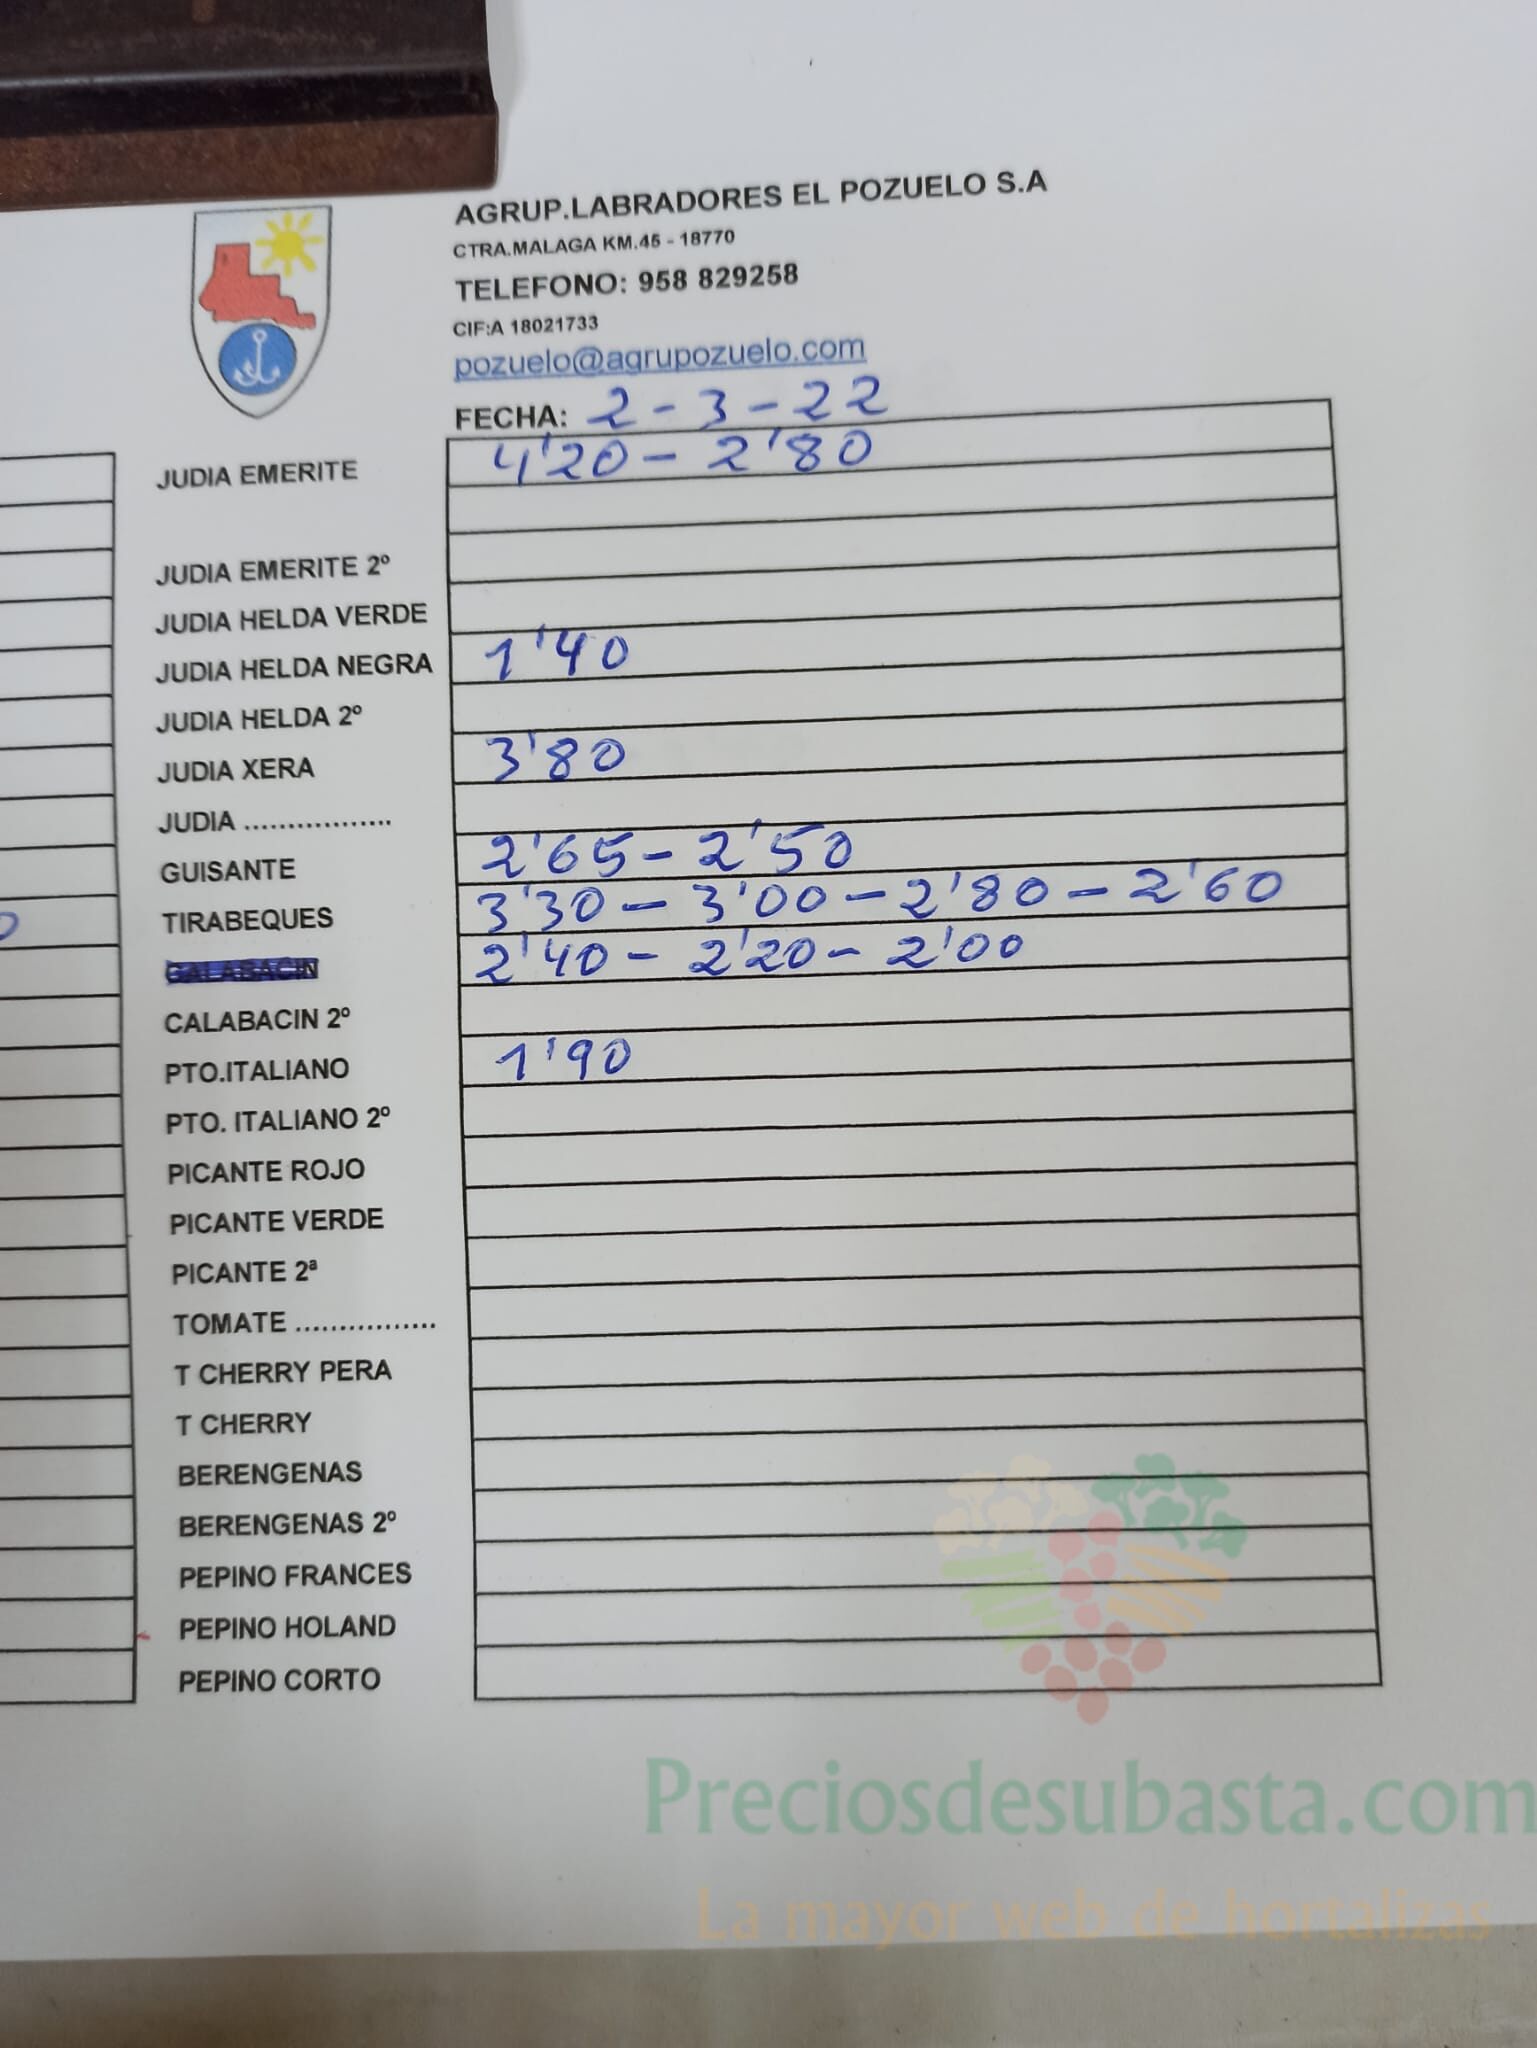 AGRUP.LABRADORES EL POZUELO S.A
CTRA.MALAGA KM.45 - 18770
TELEFONO: 958 829258
CIF:A 18021733
pozuelo@agrupozuelo.com
FECHA: 2-3-22
JUDIA EMERITE 4'20 - 2'80
JUDIA EMERITE 2º
JUDIA HELDA VERDE
JUDIA HELDA NEGRA 1'40
JUDIA HELDA 2º
JUDIA XERA 3'80
JUDIA .................
GUISANTE 2'65 - 2'50
TIRABEQUES 3'30 - 3'00 - 2'80 - 2'60
CALABACIN 2'40 - 2'20 - 2'00
CALABACIN 2º
PTO.ITALIANO 1'90
PTO. ITALIANO 2º
PICANTE ROJO
PICANTE VERDE
PICANTE 2ª
TOMATE ................
T CHERRY PERA
T CHERRY
BERENGENAS
BERENGENAS 2º
PEPINO FRANCES
PEPINO HOLAND
PEPINO CORTO
Preciosdesubasta.com
La mayor web de hortalizas